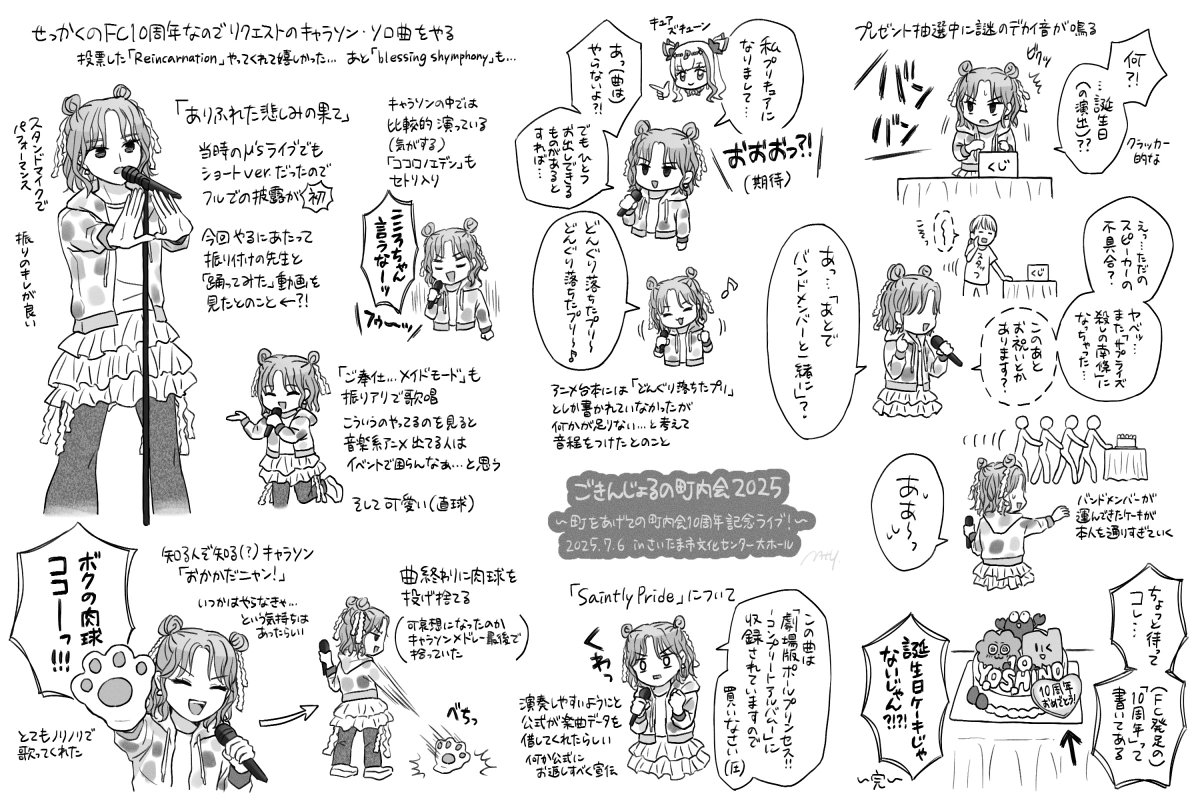 せっかくのFC10周年なのでリクエストのキャラソン・ソロ曲をやる
投票した「Reincarnation」やってくれて嬉しかった… あと「blessing shymphony」も…
スタンドマイクで
パフォーマンス
振りのキレが良い
「ありふれた悲しみの果て」
当時のμ'sライブでも
ショートver.だったので
フルでの披露が初
今回やるにあたって
振り付けの先生と
「踊ってみた」動画を
見たとのこと←?!
キャラソンの中では
比較的演っている
(気がする)
「ココロノエデン」も
セトリ入り
こころちゃん
言うなーッ
フゥ〜ッ
「ご奉仕…メイドモード」も
振りアリで歌唱
こういうのやってるのを見ると
音楽系アニメ出てる人は
イベントで困らんなぁ…と思う
そして可愛い(直球)
ボクの肉球
ココーーッ!!!
知る人ぞ知る(?)キャラソン
「おかかだニャン!」
いつかはやらなきゃ…
という気持ちは
あったらしい
とてもノリノリで
歌ってくれた
曲終わりに肉球を
投げ捨てる
(可哀想になったのか
キャラソンメドレー最後で
拾っていた)
べちっ
キュア
ズキューン
私プリキュアに
なりまして…
あっ(曲は)
やらないよ?!
おおおっ?!
(期待)
でもひとつ
お出しできる
ものがあると
すれば…
どんぐり落ちたプリ〜
どんぐり落ちたプリ〜♪
アニメ台本には「どんぐり落ちたプリ」
としか書かれていなかったが
何かが足りない…と考えて
音程をつけたとのこと
ごきんじょるの町内会2025
〜町をあげての町内会10周年記念ライブ!〜
2025.7.6 inさいたま市文化センター大ホール
「Saintly Pride」について
くわっ
この曲は
「劇場版ポールプリンセス!!
-コンプリートアルバム-」に
収録されていますので
買いなさい
(圧)
演奏しやすいようにと
公式が楽曲データを
借してくれたらしい
何か公式に
お返しすべく宣伝
プレゼント抽選中に謎のデカイ音が鳴る
バンッ
バンッ
ビクッ
何?!
…誕生日
(の演出)??
クラッカー
的な
くじ
スタッフ
くじ
こそっ
えっ…ただの
スピーカーの
不具合?
ヤベッ…
また「サプライズ
殺しの南條」に
なっちゃった…
このあと
お祝いとか
あります?
あっ…「あとで
バンドメンバーと一緒に」?
あぁ〜っ
バンドメンバーが
運んできたケーキが
本人を通りすぎていく
ちょっと待って
コレ…
(FC発足の)
「10周年」って
書いてある
誕生日ケーキじゃ
ないじゃん?!?!
10
YOSHINO
10周年
おめでとう!
〜完〜